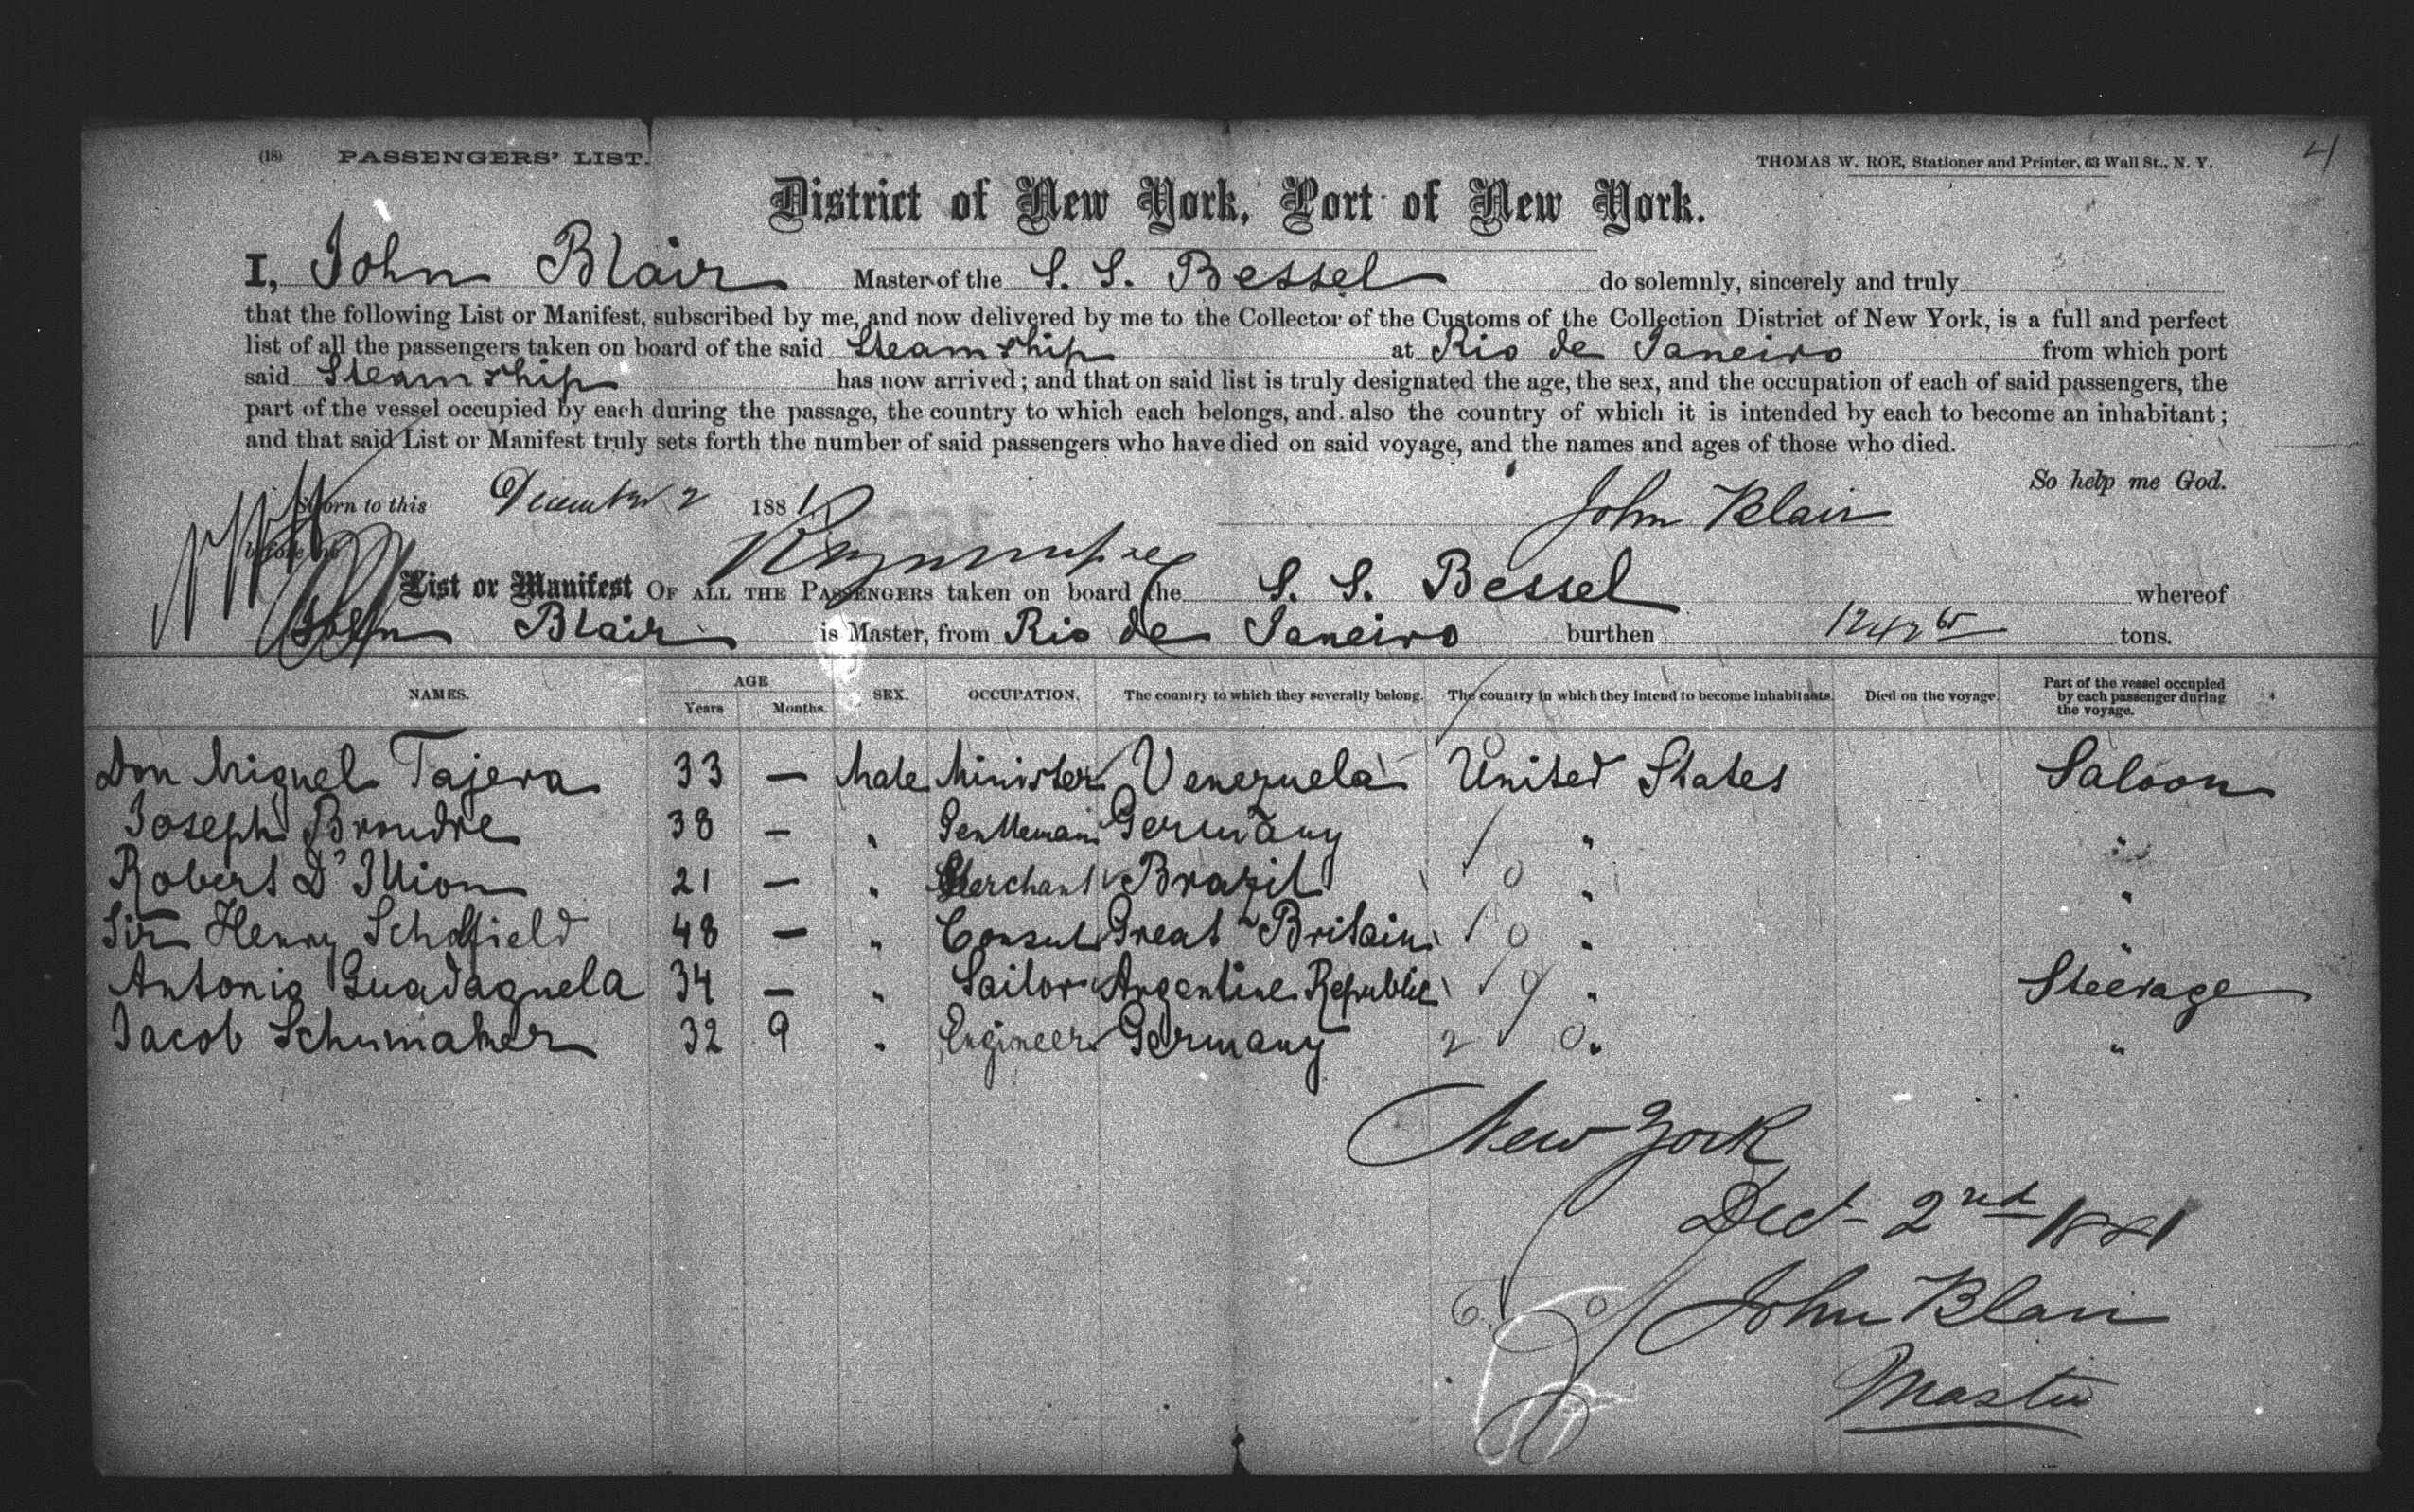 (18) PASSENGERS' LIST. THOMAS W. ROE, Stationer and Printer, 63 Wall St., N. Y. 4
District of New York, Port of New York.
I, John Blair Master of the S. S. Bessel do solemnly, sincerely and truly
that the following List or Manifest, subscribed by me, and now delivered by me to the Collector of the Customs of the Collection District of New York, is a full and perfect
list of all the passengers taken on board of the said Steamship at Rio de Janeiro from which port
said Steamship has now arrived; and that on said list is truly designated the age, the sex, and the occupation of each of said passengers, the
part of the vessel occupied by each during the passage, the country to which each belongs, and also the country of which it is intended by each to become an inhabitant;
and that said List or Manifest truly sets forth the number of said passengers who have died on said voyage, and the names and ages of those who died.
So help me God.
Sworn to this December 2 1881 John Blair
before me
List or Manifest OF ALL THE PASSENGERS taken on board the S. S. Bessel whereof
John Blair is Master, from Rio de Janeiro burthen 1242 65 tons.
NAMES. AGE Years Months. SEX. OCCUPATION. The country to which they severally belong. The country in which they intend to become inhabitants. Died on the voyage. Part of the vessel occupied by each passenger during the voyage.
Don Miguel Tajera 33 — Male Minister Venezuela United States Saloon
Joseph Broudre 38 — " Gentleman Germany " "
Robert D'Illion 21 — " Merchant Brazil " "
Sir Henry Schofield 48 — " Consul Great Britain " "
Antonio Guadagnela 34 — " Sailor Argentine Republic " Steerage
Jacob Schumaker 32 9 " Engineer Germany " "
New York
Dec 2nd 1881
John Blair
Master